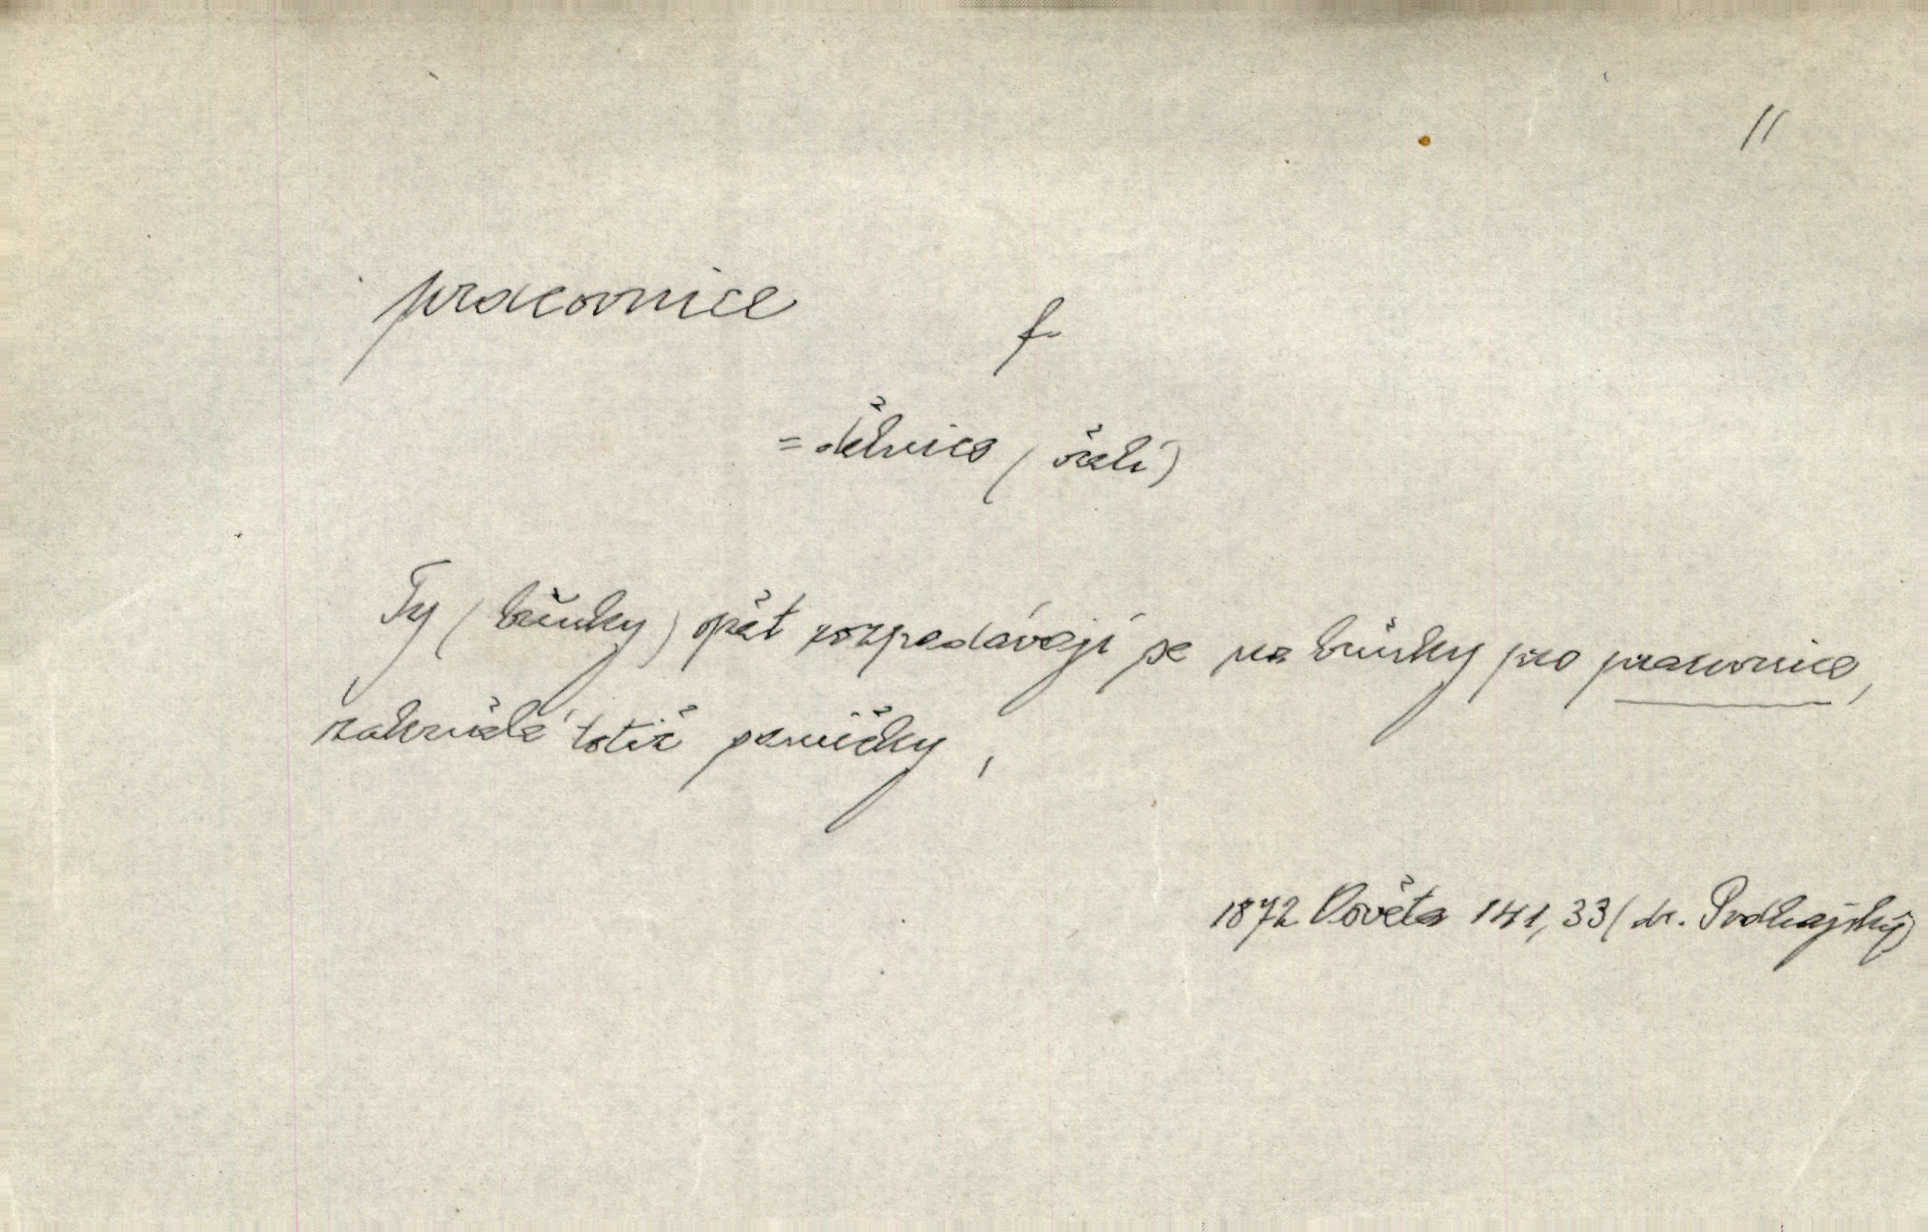 11
pracovnice
f.
= dělnice (včelí)
Ty (buňky) opět rozpadávají se na buňky pro pracovnice,
zakrnělé totiž samičky,
1872 Osvěta 141, 33 (dr. Podhajský)